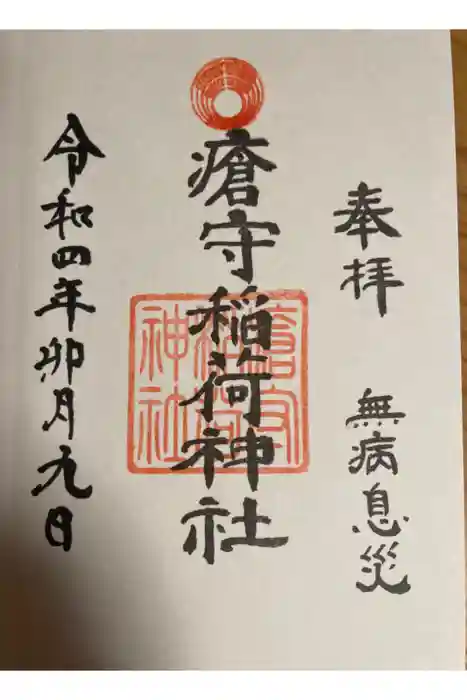 奉拝 無病息災
瘡守稲荷神社
瘡守
稲荷
神社
令和四年卯月九日